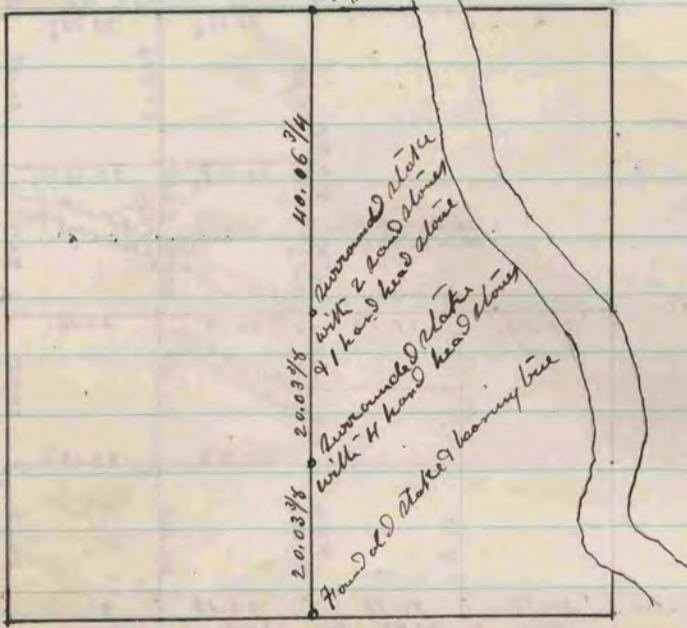 40.06 3/4
surrounded stake
with 2 sand stones
& 1 hard head stone
20.03 3/8
surrounded stake
with 4 hard head stones
20.03 3/8
Found old stake & bearing tree